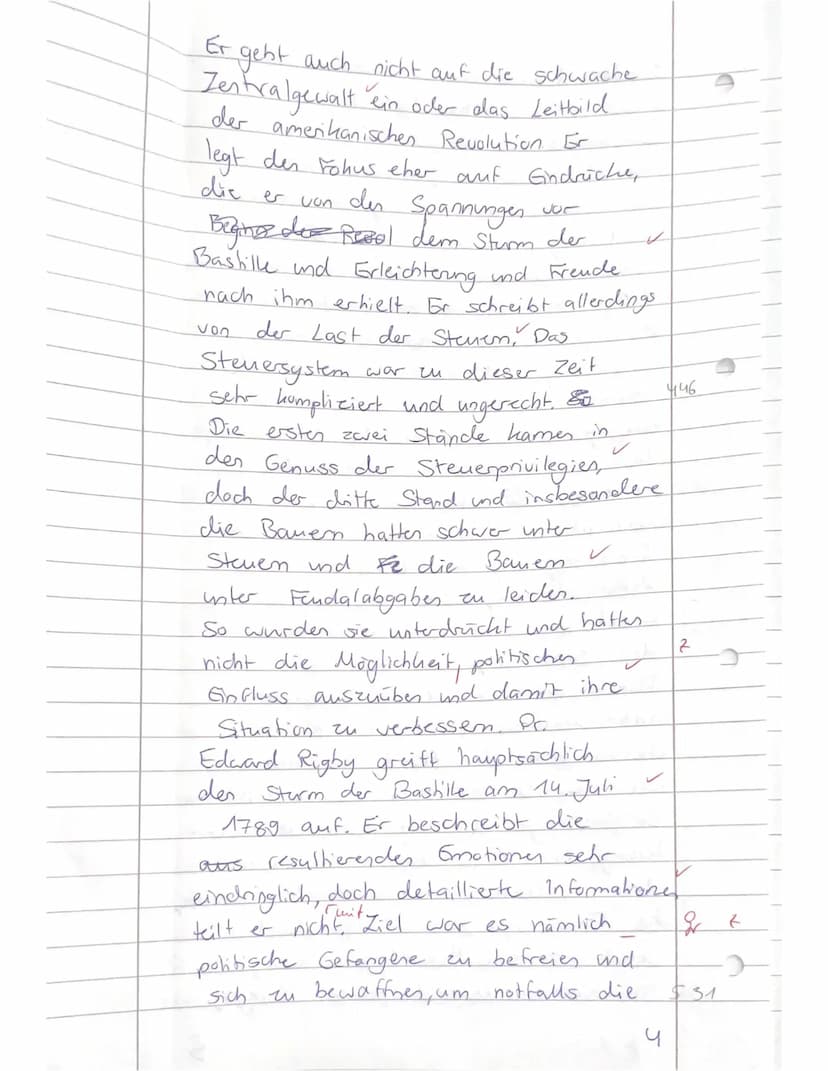 Er geht auch nicht auf die schwache
Zentralgewalt ein oder das Leitbild
der amerikanischen Revolution Er
legt den Fokus eher auf Eindrücke,
die er von den Spannungen vor
dem Sturm der
Bastille und Erleichterung und Freude
nach ihm erhielt. Er schreibt allerdings
von der Last der Steuern. Das
Steuersystem war zu dieser Zeit
sehr kompliziert und ungerecht.
446
Die ersten zwei Stände kamen in
den Genuss der Steuerprivilegien,
doch der dritte Stand und insbesondere
die Bauern hatten schwer unter
Steuern und die Bauern
unter Feudalabgaben zu leiden.
So wurden sie unterdrückt und hatten
nicht die Möglichkeit, politischen
Einfluss auszuüben und damit ihre
Situation zu verbessern. Dr.
Edward Rigby greift hauptsächlich
den Sturm der Bastille am 14. Juli
1789 auf. Er beschreibt die
resultierenden Emotionen sehr
eindringlich, doch detaillierte Informationen
teilt er nicht mit. Ziel war es nämlich
politische Gefangene zu befreien und
sich zu bewaffnen, um notfalls die
531
4